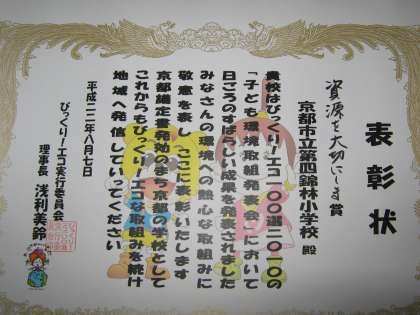 表彰状
資源を大切にしま賞
京都市立第四錦林小学校 殿
貴校はびっくり！エコ１００選２０１０の
「子ども環境取組発表会」において
日ごろのすばらしい成果を発表されました
みなさんの環境への熱心な取組みに
敬意を表し ここに表彰いたします
京都議定書発効のまち京都の学校として
これからもびっくり！エコな取組みを続け
地域へ発信していってください
平成二二年八月七日
びっくり！エコ実行委員会
理事長 浅利美鈴